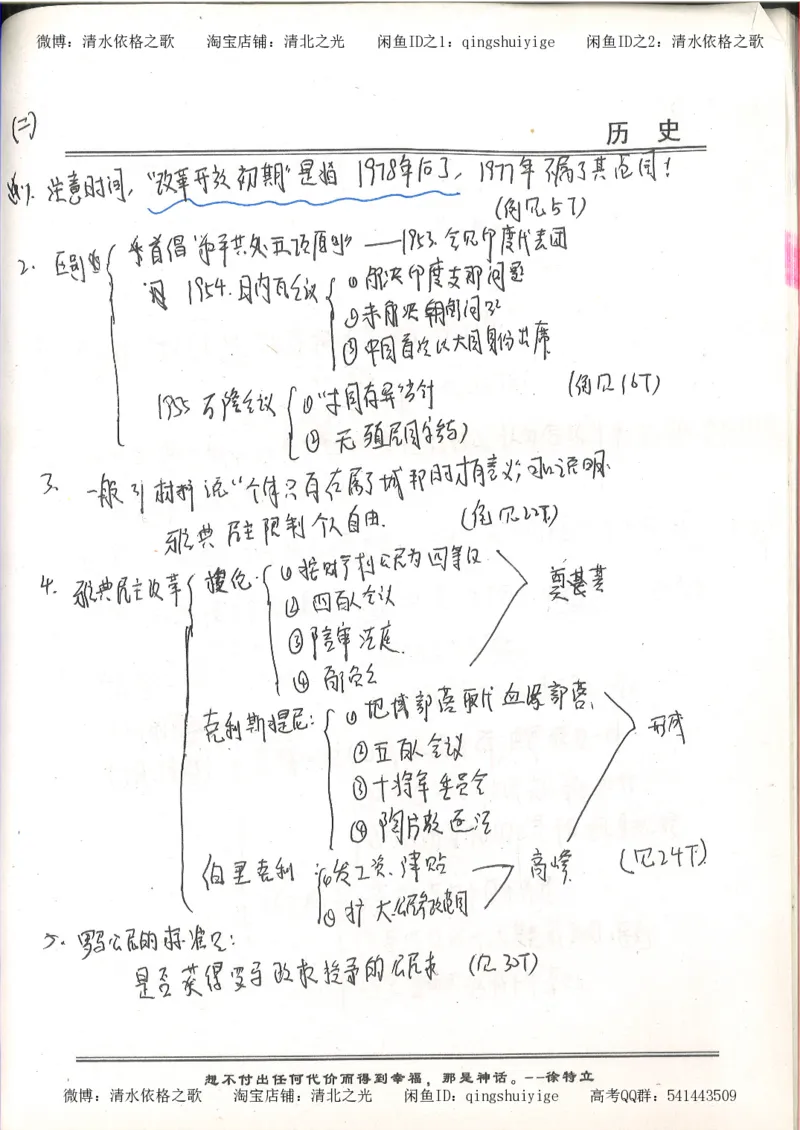 微博：清水依格之歌 淘宝店铺：清北之光 闲鱼ID之1：qingshuiyige 闲鱼ID之2：清水依格之歌
(二)
历 史
1. 注意时间，“改革开放初期”是指 1978年后了，1977年不属于其范围！
(例见5T)
2. 区别 首倡“和平共处五项原则”——1953. 会见印度代表团
1954. 日内瓦会议 ① 解决印度支那问题
② 未解决朝鲜问题
③ 中国首次以大国身份出席
(例见16T)
1955 万隆会议 ①“求同存异”方针
② 无殖民国家参与)
3. 一般引材料说“个体只有在属于城邦时才有意义”，可以说明
雅典民主限制个人自由. (例见22T)
4. 雅典民主改革 梭伦. ① 按财产划公民为四等级
② 四百人会议
③ 陪审法庭.
④
奠基
克利斯提尼: ① 地域部落取代血缘部落.
② 五百人会议
③ 十将军委员会
④ 陶片放逐法
形成
伯里克利 ① 发工资、津贴
② 扩大公民参政范围
高峰 (见24T)
5. 罗马公民的标准是:
是否获得罗马政权授予的公民权 (见30T)
想不付出任何代价而得到幸福，那是神话。--徐特立
微博：清水依格之歌 淘宝店铺：清北之光 闲鱼ID：qingshuiyige 高考QQ群：541443509